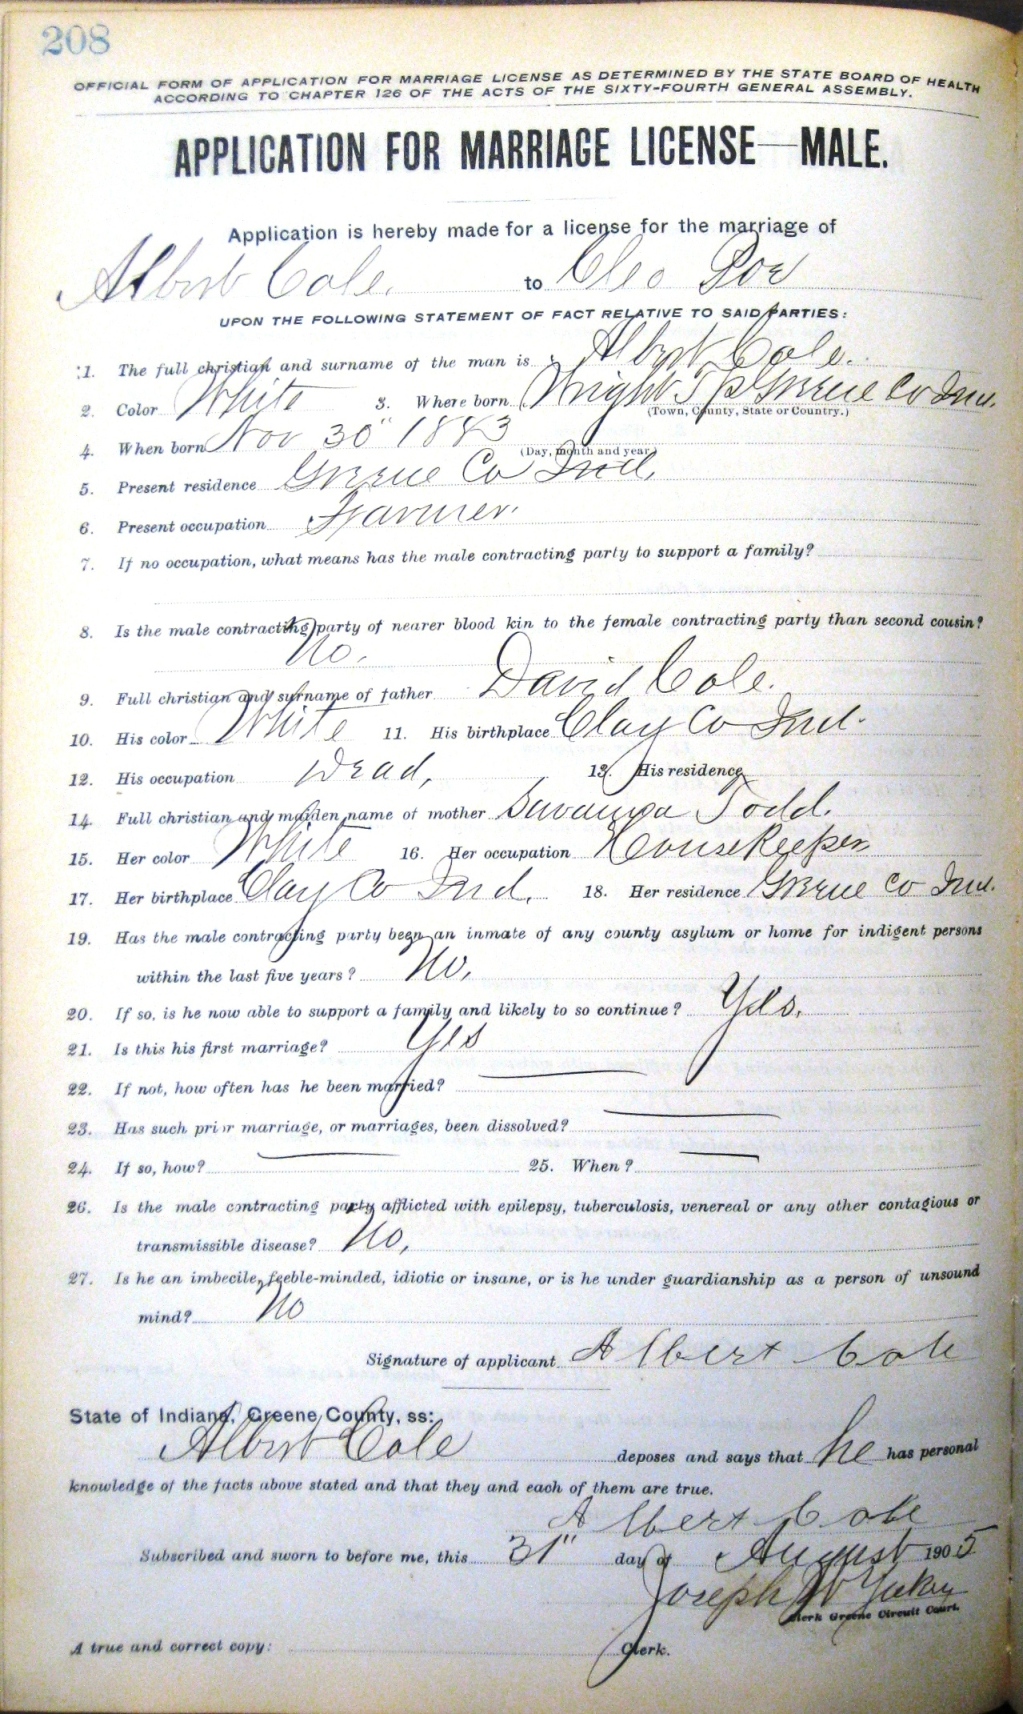 208
OFFICIAL FORM OF APPLICATION FOR MARRIAGE LICENSE AS DETERMINED BY THE STATE BOARD OF HEALTH
ACCORDING TO CHAPTER 126 OF THE ACTS OF THE SIXTY-FOURTH GENERAL ASSEMBLY.
APPLICATION FOR MARRIAGE LICENSE—MALE.
Application is hereby made for a license for the marriage of
Albert Cole. to Cleo Poe
UPON THE FOLLOWING STATEMENT OF FACT RELATIVE TO SAID PARTIES:
1. The full christian and surname of the man is Albert Cole.
2. Color White 3. Where born Wright Tp Greene Co Ind.
(Town, County, State or Country.)
4. When born Nov 30" 1883
(Day, month and year)
5. Present residence Greene Co Ind.
6. Present occupation Farmer.
7. If no occupation, what means has the male contracting party to support a family?
8. Is the male contracting party of nearer blood kin to the female contracting party than second cousin?
No.
9. Full christian and surname of father David Cole.
10. His color White 11. His birthplace Clay Co Ind.
12. His occupation Dead, 13. His residence
14. Full christian and maiden name of mother Todd.
15. Her color White 16. Her occupation HouseKeeper
17. Her birthplace Clay Co Ind. 18. Her residence Greene Co Ind.
19. Has the male contracting party been an inmate of any county asylum or home for indigent persons
within the last five years? No.
20. If so, is he now able to support a family and likely to so continue? Yes.
21. Is this his first marriage? Yes
22. If not, how often has he been married?
23. Has such prior marriage, or marriages, been dissolved?
24. If so, how? 25. When?
26. Is the male contracting party afflicted with epilepsy, tuberculosis, venereal or any other contagious or
transmissible disease? No,
27. Is he an imbecile, feeble-minded, idiotic or insane, or is he under guardianship as a person of unsound
mind? No
Signature of applicant Albert Cole
State of Indiana, Greene County, ss:
Albert Cole deposes and says that he has personal
knowledge of the facts above stated and that they and each of them are true.
Albert Cole
Subscribed and sworn to before me, this 31" day of August 1905
Joseph W Yakey
Clerk Greene Circuit Court.
A true and correct copy: Clerk.